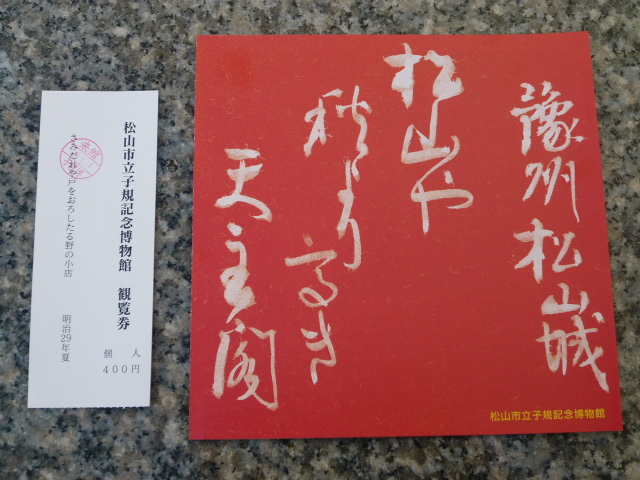 松山市立子規記念博物館 観覧券
さみだれや戸をおろしたる野の小店
明治29年夏
個人
400円
豫州松山城
松山や
秋より高き
天主閣
松山市立子規記念博物館